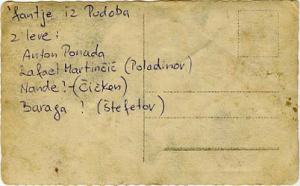 Fantje iz Pudoba
z leve:
Anton Ponada
Rafael Martinčič (Poladinov)
Nande! - (Čičkov)
Baraga ! (Štefetov)